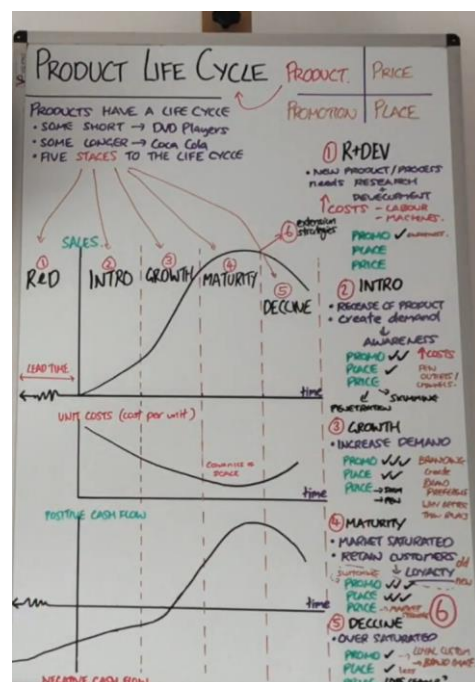 PRODUCT LIFE CYCLE
PRODUCT.
PRICE
PROMOTION
PLACE
PRODUCTS HAVE A LIFE CYCLE
• SOME SHORT → DVD Players
• SOME LONGER → Coca Cola
• FIVE STAGES TO THE LIFE CYCLE
SALES
① R&D
② INTRO
③ GROWTH
④ MATURITY
⑤ DECLINE
⑥ extension strategies
LEAD TIME
time
UNIT COSTS (cost per unit)
time
POSITIVE CASH FLOW
time
NEGATIVE CASH FLOW
① R+DEV
• NEW PRODUCT/PROCESS
needs RESEARCH
+
DEVELOPMENT
↑ COSTS - LABOUR
- MACHINES.
PROMO ✓
PLACE
PRICE
② INTRO
• RELEASE OF PRODUCT
• Create demand
↓
AWARENESS
PROMO ✓✓ ↑COSTS
PLACE ✓ FEW
OUTLETS/
CHANNELS.
PRICE → SKIMMING
PENETRATION
③ GROWTH
• INCREASE DEMAND
PROMO ✓✓✓ BRANDING
PLACE ✓✓ Create
BRAND
PREFERENCE
PRICE → SKIM
→ PEN
④ MATURITY
• MARKET SATURATED
• RETAIN CUSTOMERS old
↓ LOYALTY new
PROMO ✓✓✓
PLACE ✓✓✓
PRICE
⑥
⑤ DECLINE
• OVER SATURATED
PROMO ✓ → LOYAL CUSTOM
→ BRAND
PLACE ✓ less